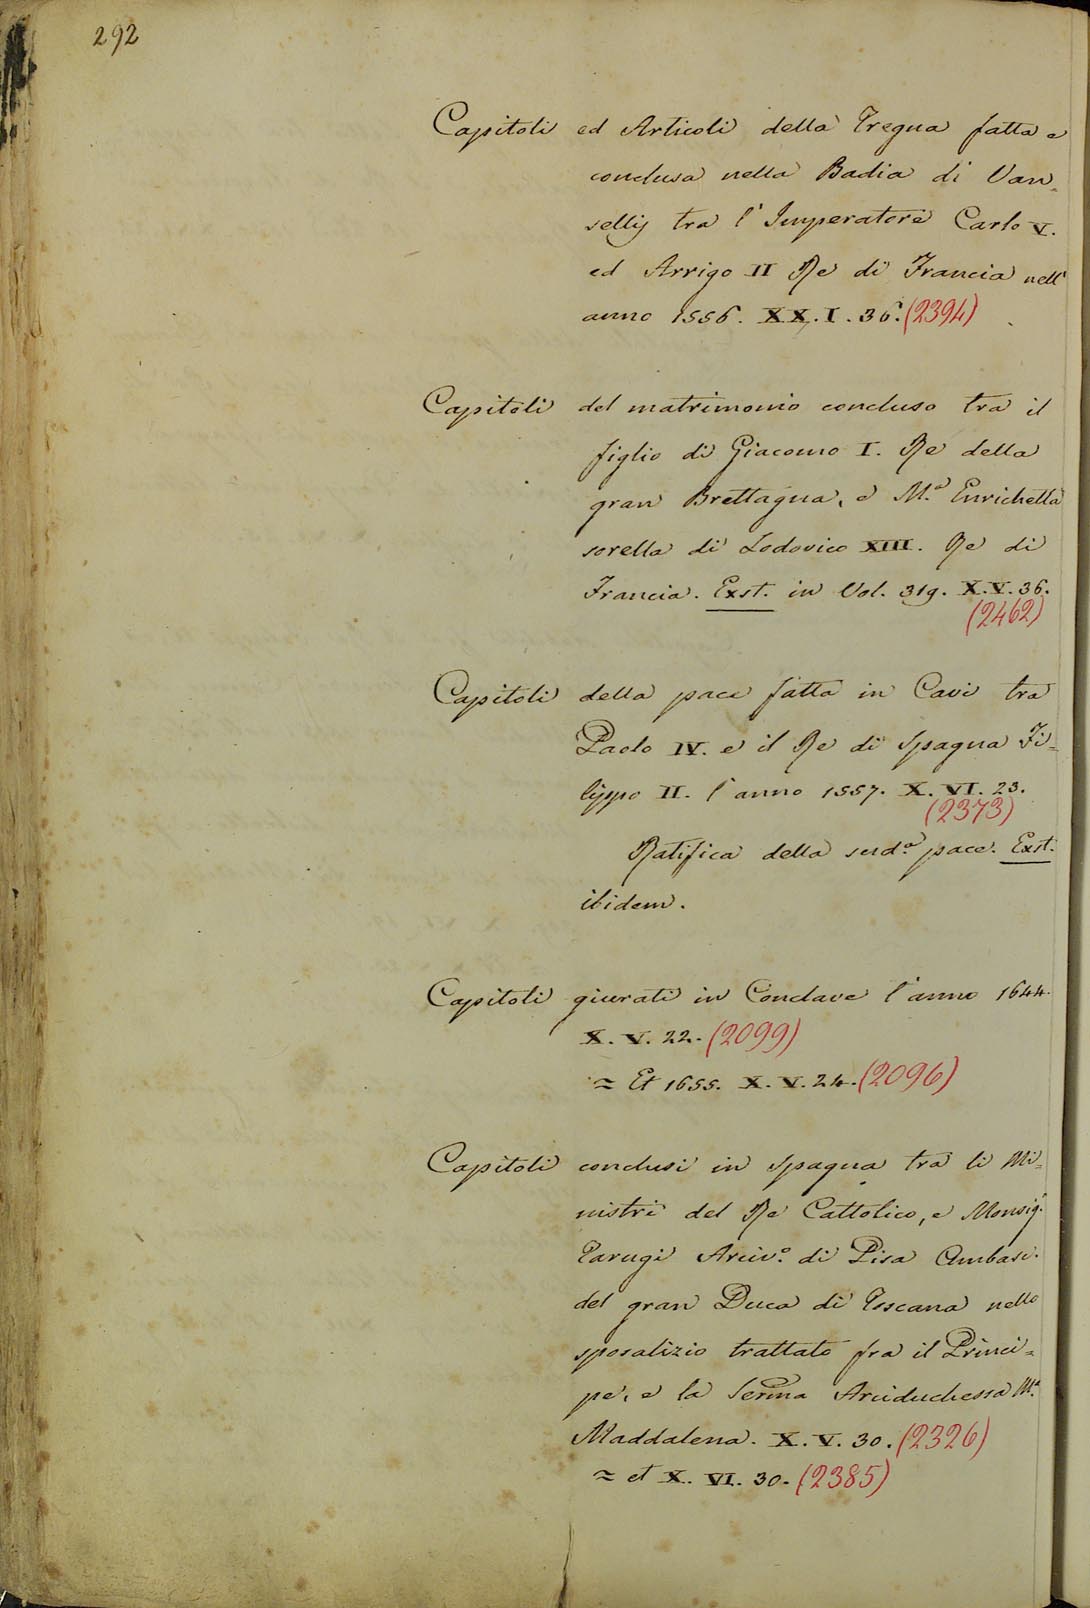 292
Capitoli ed Articoli della Tregua fatta e
conclusa nella Badia di Van=
sellij tra l'Imperatore Carlo V.
ed Arrigo II Re di Francia nell'
anno 1556. XX. I. 36. (2394)
Capitoli del matrimonio concluso tra il
figlio di Giacomo I. Re della
gran Brettagna, e M.ª Enrichetta
sorella di Lodovico XIII. Re di
Francia. Exst. in Vol. 319. X. V. 36.
(2462)
Capitoli della pace fatta in Cavi tra
Paolo IV. e il Re di Spagna Fi=
lippo II. l'anno 1557. X. VI. 23.
(2373)
Ratifica della sud.ª pace. Exst.
ibidem.
Capitoli giurati in Conclave l'anno 1644.
X. V. 22. (2099)
≃ Et 1655. X. V. 24. (2096)
Capitoli conclusi in Spagna tra li Mi=
nistri del Re Cattolico, e Monsig.r
Tarugi Arciv.º di Pisa Ambasc.
del gran Duca di Toscana nello
sposalizio trattato fra il Princi=
pe, e la Serma Arciduchessa M.ª
Maddalena. X. V. 30. (2326)
≃ et X. VI. 30. (2385)